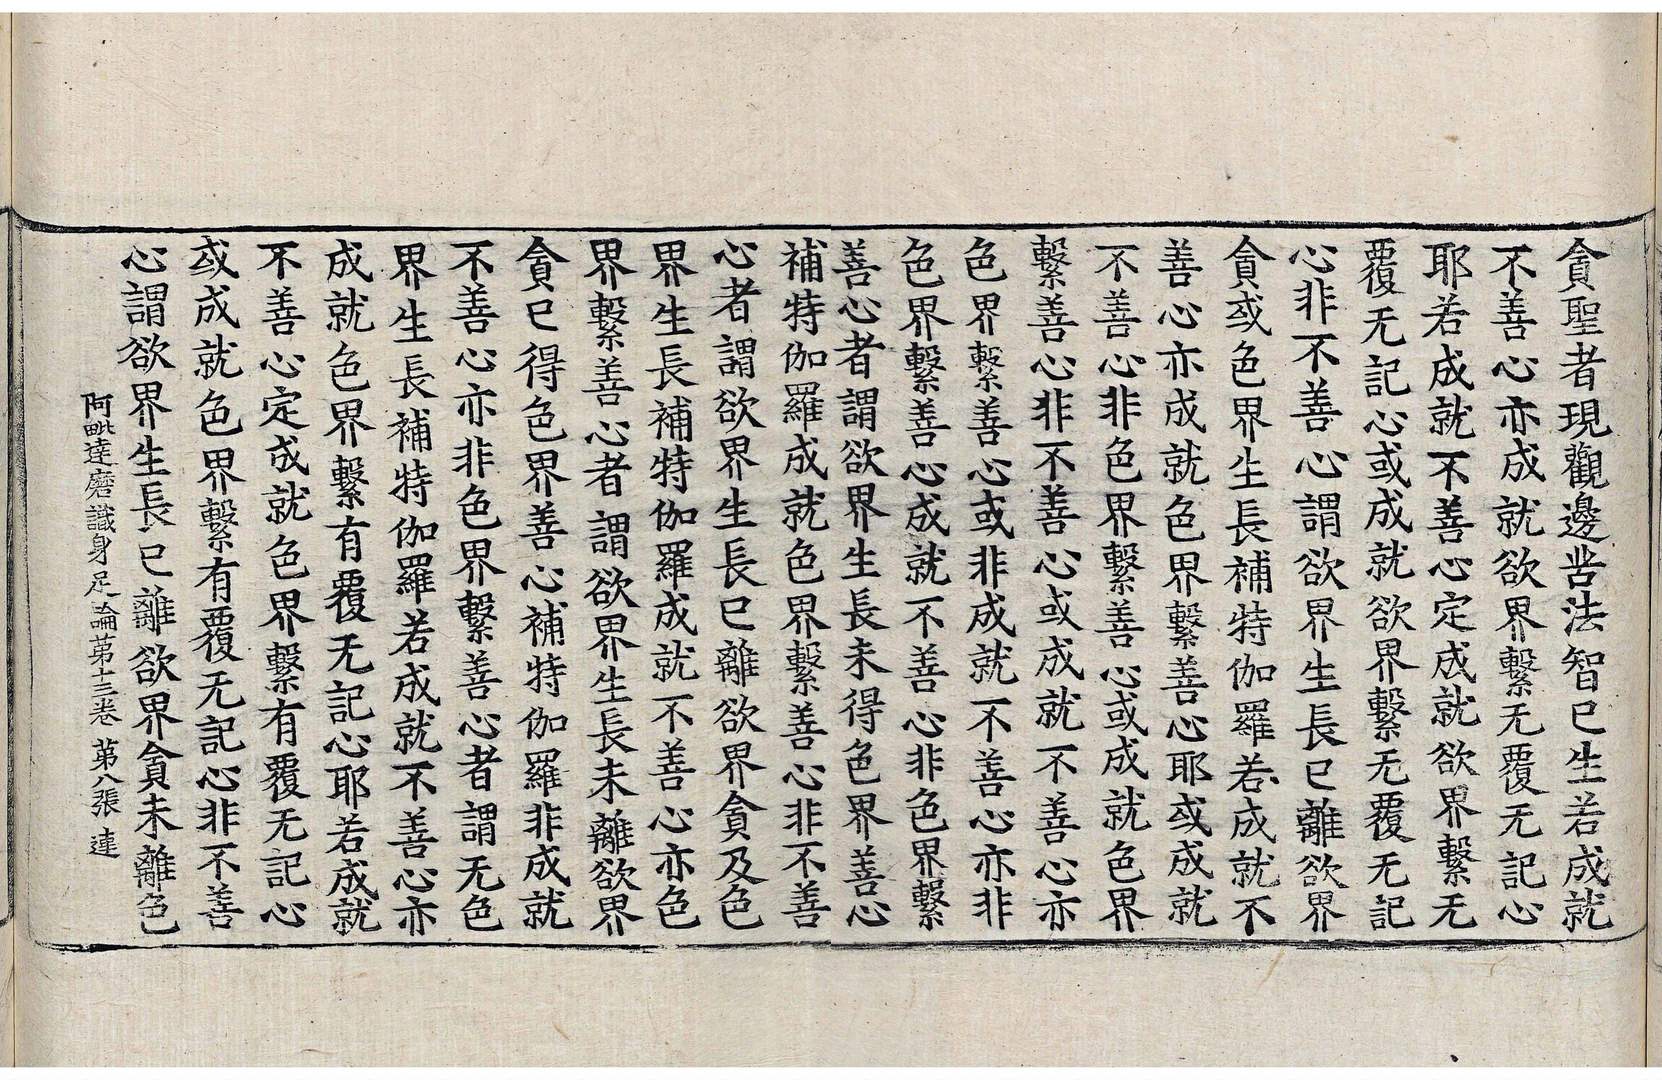 貪聖者現觀邊苦法智已生若成就
不善心亦成就欲界繫无覆无記心
耶若成就不善心定成就欲界繫无
覆无記心或成就欲界繫无覆无記
心非不善心謂欲界生長已離欲界
貪或色界生長補特伽羅若成就不
善心亦成就色界繫善心耶或成就
不善心非色界繫善心或成就色界
繫善心非不善心或成就不善心亦
色界繫善心或非成就不善心亦非
色界繫善心成就不善心非色界繫
善心者謂欲界生長未得色界善心
補特伽羅成就色界繫善心非不善
心者謂欲界生長已離欲界貪及色
界生長補特伽羅成就不善心亦色
界繫善心者謂欲界生長未離欲界
貪已得色界善心補特伽羅非成就
不善心亦非色界繫善心者謂无色
界生長補特伽羅若成就不善心亦
成就色界繫有覆无記心耶若成就
不善心定成就色界繫有覆无記心
或成就色界繫有覆无記心非不善
心謂欲界生長已離欲界貪未離色
阿毗達磨識身足論第十三卷 第八張 連